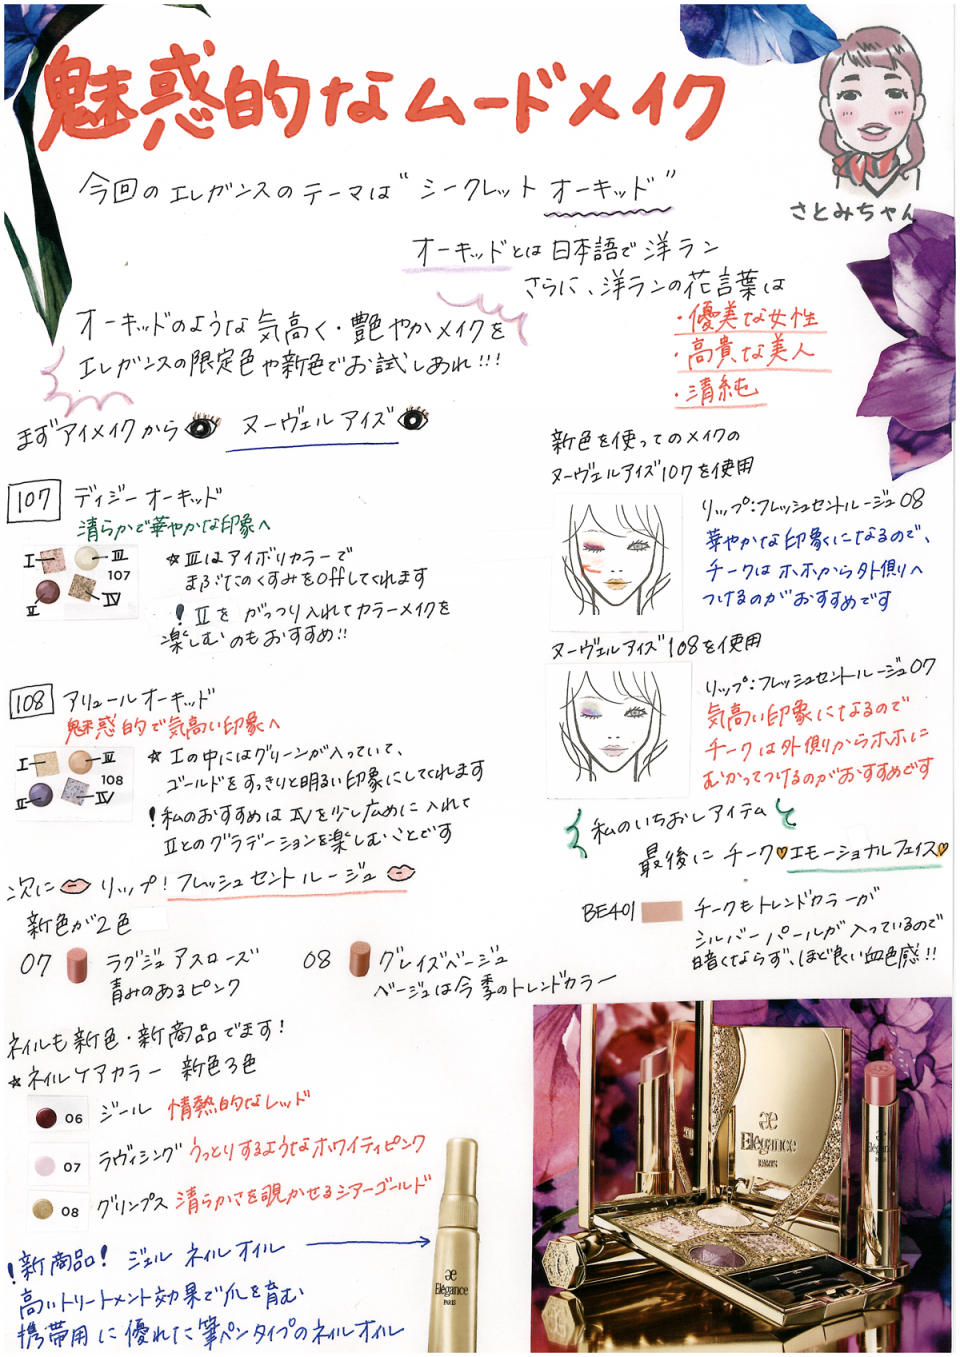 魅惑的なムードメイク
さとみちゃん
今回のエレガンスのテーマは"シークレット オーキッド"
オーキッドとは日本語で洋ラン
さらに、洋ランの花言葉は
・優美な女性
・高貴な美人
・清純
オーキッドのような気高く・艶やかメイクを
エレガンスの限定色や新色でお試しあれ!!!
まずアイメイクから ヌーヴェルアイズ
107 ディジーオーキッド
清らかで華やかな印象へ
I III
II IV
107
☆IIIはアイボリカラーで
まぶたのくすみをoffしてくれます
!IIを がっつり入れてカラーメイクを
楽しむのもおすすめ!!
108 アリュールオーキッド
魅惑的で気高い印象へ
I III
II IV
108
☆Iの中にはグリーンが入っていて、
ゴールドをすっきりと明るい印象にしてくれます
!私のおすすめはIVを少し広めに入れて
IIとのグラデーションを楽しむことです
新色を使ってのメイクの
ヌーヴェルアイズ107を使用
リップ:フレッシュセントルージュ08
華やかな印象になるので、
チークはホホから外側へ
つけるのがおすすめです
ヌーヴェルアイズ108を使用
リップ:フレッシュセントルージュ07
気高い印象になるので
チークは外側からホホに
むかってつけるのがおすすめです
次に リップ! フレッシュセントルージュ
新色が2色
07 ラグジュアスローズ
青みのあるピンク
08 グレイズベージュ
ベージュは今季のトレンドカラー
私のいちおしアイテム
最後にチーク♡エモーショナルフェイス♡
BE401 チークもトレンドカラーが
シルバーパールが入っているので
暗くならず、ほど良い血色感!!
ネイルも新色・新商品でます!
☆ネイルケアカラー 新色3色
06 ジール 情熱的なレッド
07 ラヴィシング うっとりするようなホワイティピンク
08 グリンプス 清らかさを覗かせるシアーゴールド
!新商品! ジェル ネイルオイル
高いトリートメント効果で爪を育む
携帯用に優れた筆ペンタイプのネイルオイル
æ
Elégance
PARIS
æ
Elégance
PARIS